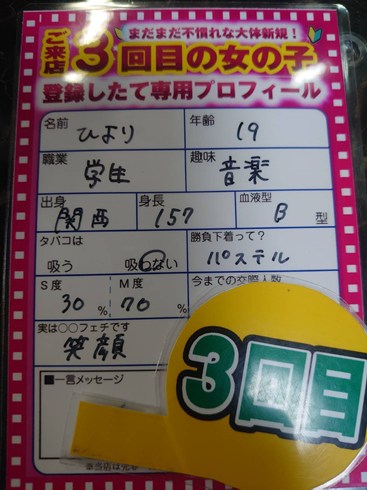 まだまだ不慣れな大体新規！
ご来店3回目の女の子
登録したて専用プロフィール
名前 ひより 年齢 19
職業 学生 趣味 音楽
出身 関西 身長 157 血液型 B 型
タバコは 吸う 吸わない 勝負下着って？ パステル
S度 30% M度 70% 今までの交際人数
実は○○フェチです
笑顔
3回目
■一言メッセージ